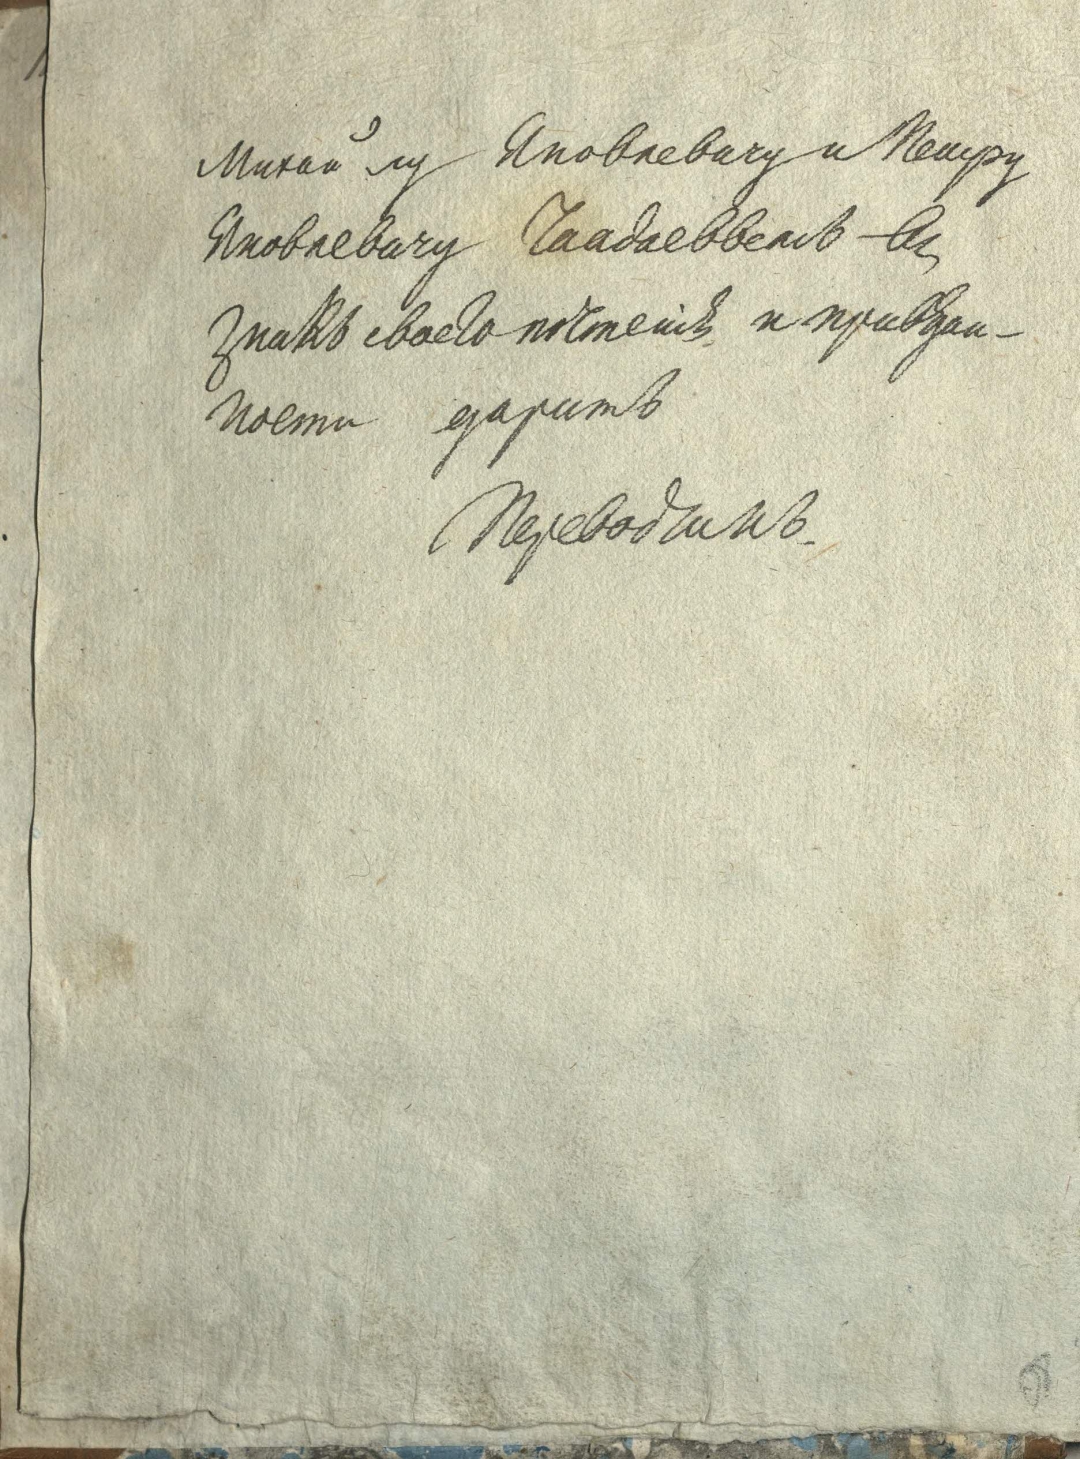 Михайлу Яковлевичу и Петру
Яковлевичу Чаадаеввемъ – въ
знакъ своего почтенія и привязан-
ности даритъ
Переводчикъ.